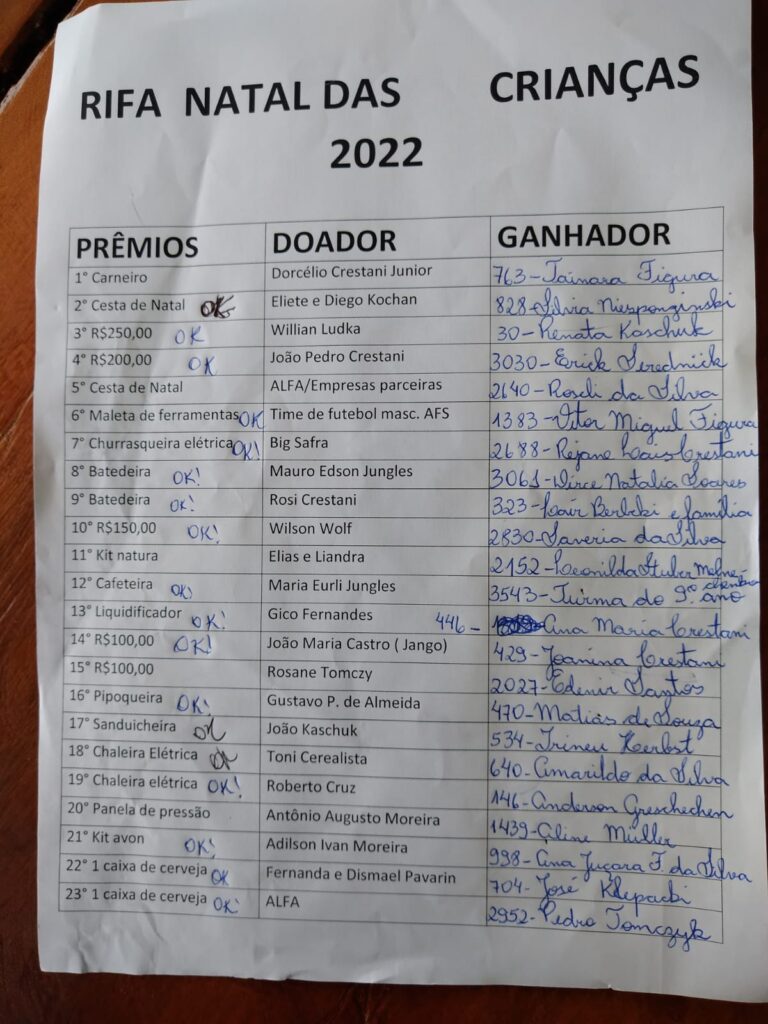 RIFA NATAL DAS CRIANÇAS
2022
PRÊMIOS DOADOR GANHADOR
1° Carneiro Dorcélio Crestani Junior 763-Tainara Figura
2° Cesta de Natal OK Eliete e Diego Kochan 828-Silvia
3° R$250,00 OK Willian Ludka 30-Renata Kaschuk
4° R$200,00 OK João Pedro Crestani 3030-Erick
5° Cesta de Natal ALFA/Empresas parceiras 2640-Roseli da Silva
6° Maleta de ferramentas OK Time de futebol masc. AFS 1383-Vitor Miguel Figura
7° Churrasqueira elétrica OK! Big Safra 2688-Rejane Crestani
8° Batedeira OK! Mauro Edson Jungles 3061-Dirce Natalia Soares
9° Batedeira OK! Rosi Crestani 323- e família
10° R$150,00 OK! Wilson Wolf 2830-Saveria da Silva
11° Kit natura Elias e Liandra 2152-Leonilda
12° Cafeteira OK! Maria Eurli Jungles 3543-Turma do 9º ano
13° Liquidificador OK! Gico Fernandes 446- Ana Maria Crestani
14° R$100,00 OK! João Maria Castro ( Jango) 429-Joanina Crestani
15° R$100,00 Rosane Tomczy 2027-Edenir Santos
16° Pipoqueira OK! Gustavo P. de Almeida 470-Matias de Souza
17° Sanduicheira OK João Kaschuk 534-Irineu Herbst
18° Chaleira Elétrica OK Toni Cerealista 640-Amarildo da Silva
19° Chaleira elétrica OK! Roberto Cruz 146-Anderson Greschechen
20° Panela de pressão Antônio Augusto Moreira 1439-Aline Müller
21° Kit avon OK! Adilson Ivan Moreira 998-Ana Juçara F. da Silva
22° 1 caixa de cerveja OK Fernanda e Dismael Pavarin 704-José Klepacki
23° 1 caixa de cerveja OK! ALFA 2952-Pedro Tomczyk